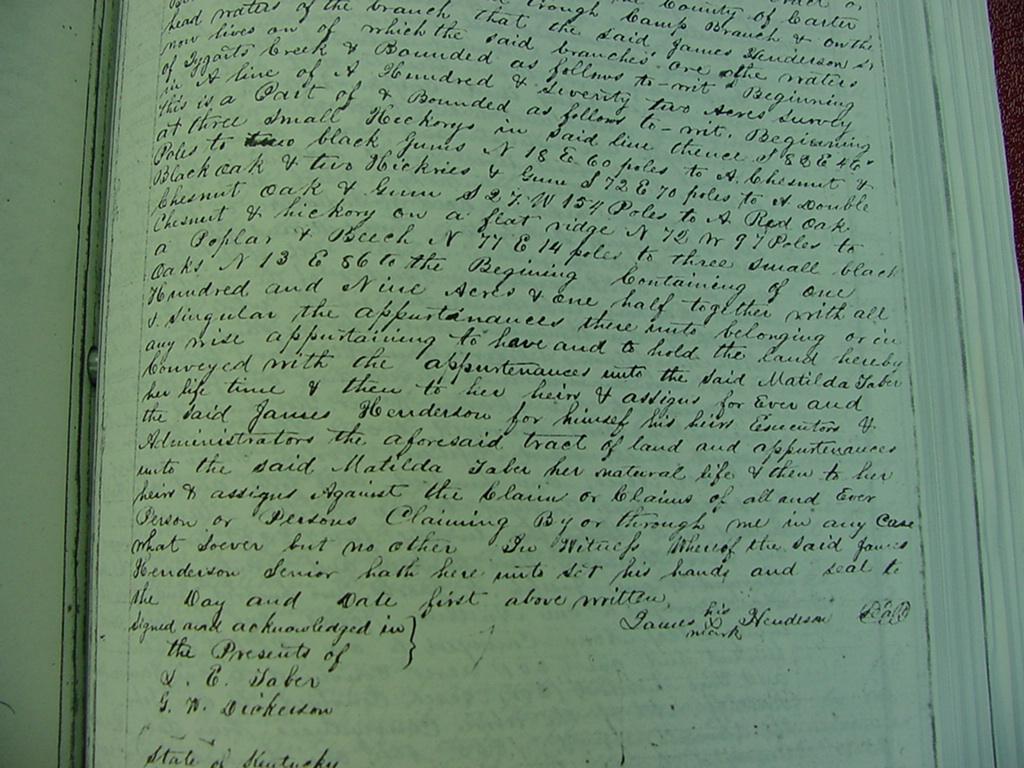 the County of Carter
head waters of the branch trough Camp Branch & on the
now lives on of which the that the said James Henderson Sr
of Tygarts Creek & Bounded said branches are the waters
in A line of A Hundred & as follows to-wit Beginning
this is a Part of & Bounded Seventy two Acres Survey
at three Small Hickorys as follows to-wit. Beginning
Poles to two black Gums in Said line thence S 82 E 46
Black oak & two Hickries N 18 E 60 poles to A. Chesnut &
Chesnut Oak & Gum & Gum S 72 E 70 poles to A Double
Chesnut & hickory on S 27 W 154 Poles to A Red Oak
a Poplar & Beech a flat ridge N 72 W 97 Poles to
Oaks N 13 E 86 to N 77 E 14 poles to three small black
Hundred and Nine the Begining Containing of one
& singular the Acres & one half together with all
any wise appurtaining appurtenances there unto belonging or in
Conveyed with the to have and to hold the land hereby
her life time & then appurtenances unto the said Matilda Taber
the said James to her heirs & assigns for Ever and
Administrators Henderson for himsef his heirs Executors &
the aforesaid tract of land and appurtenances
unto the said Matilda Taber her natural life & then to her
heirs & assigns Against the Claim or Claims of all and Ever
Person or Persons Claiming By or through me in any Case
what soever but no other In Witness Whereof the said James
Henderson Senior hath here unto set his hands and seal to
the Day and Date first above written,
Signed and acknowledged in } James his X mark Henderson Seal
the Presents of
D. E. Taber
G. W. Dickerson
State of Kentucky